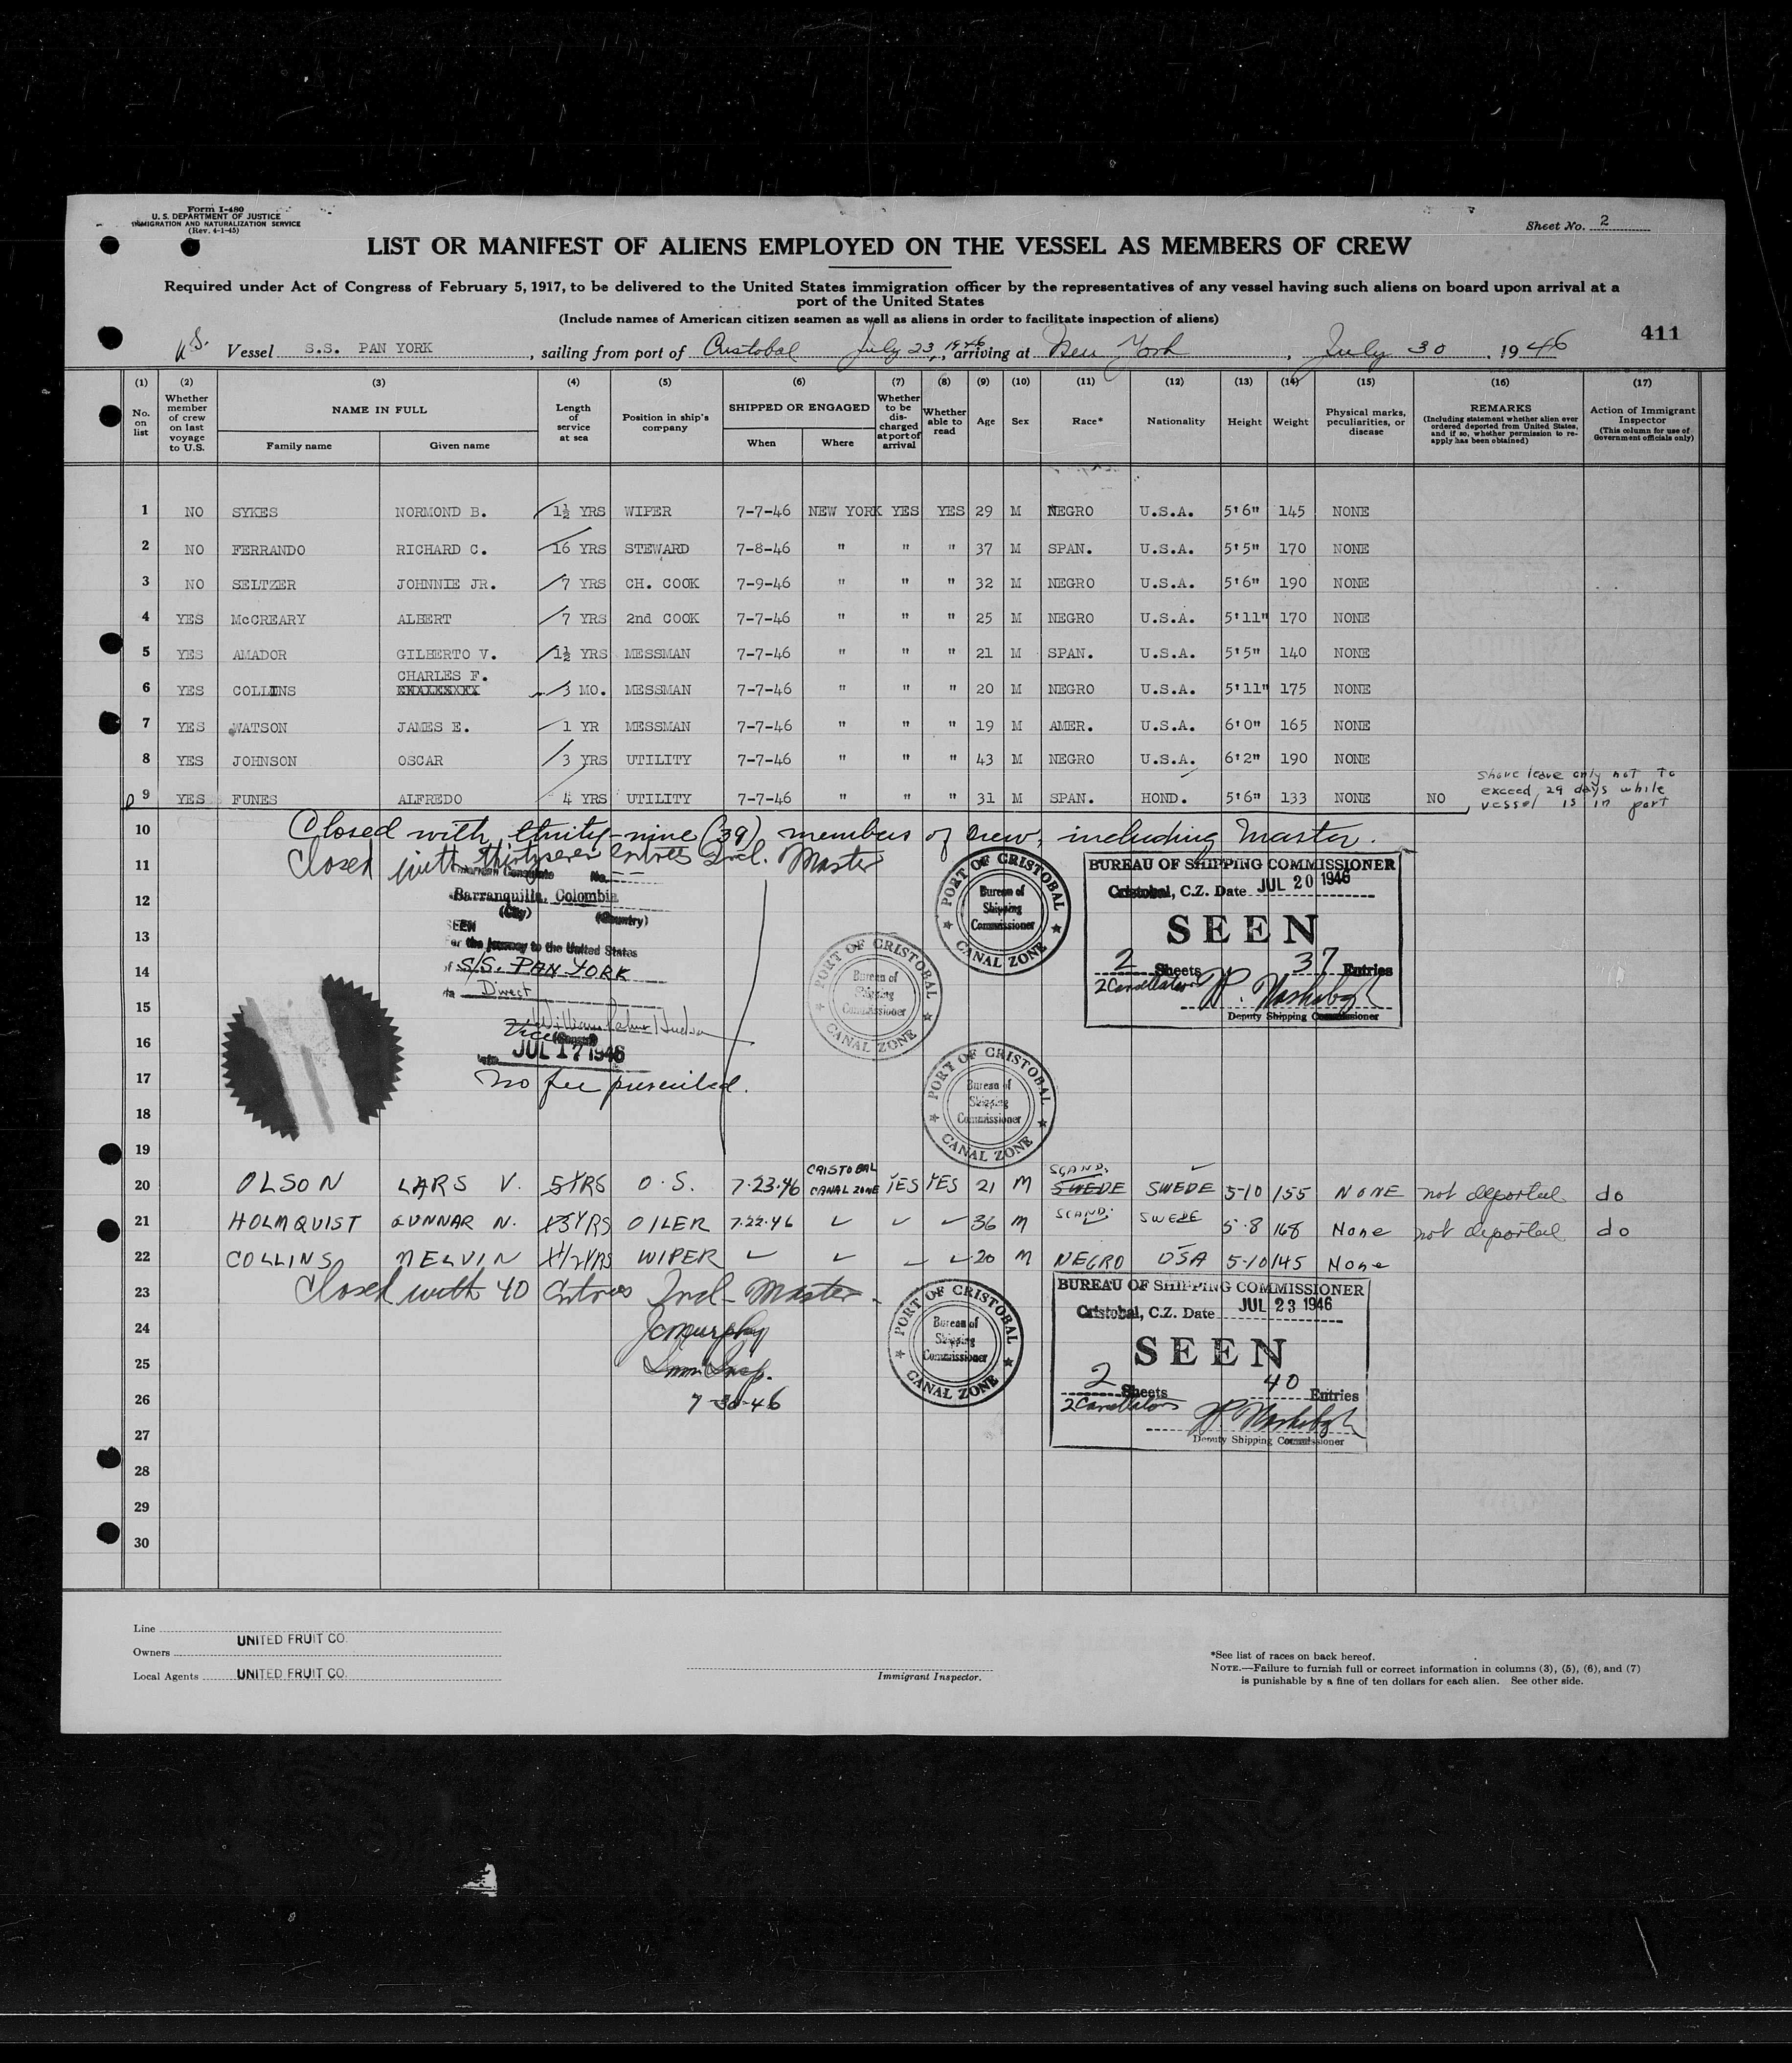 Form I-480
U. S. DEPARTMENT OF JUSTICE
IMMIGRATION AND NATURALIZATION SERVICE
(Rev. 4-1-45)
Sheet No. 2
LIST OR MANIFEST OF ALIENS EMPLOYED ON THE VESSEL AS MEMBERS OF CREW
Required under Act of Congress of February 5, 1917, to be delivered to the United States immigration officer by the representatives of any vessel having such aliens on board upon arrival at a
port of the United States
(Include names of American citizen seamen as well as aliens in order to facilitate inspection of aliens)
411
U.S. Vessel S.S. PAN YORK, sailing from port of Cristobal July 23, 1946, arriving at New York, July 30, 1946
(1) (2) (3) (4) (5) (6) (7) (8) (9) (10) (11) (12) (13) (14) (15) (16) (17)
No. on list
Whether member of crew on last voyage to U.S.
NAME IN FULL
Family name
Given name
Length of service at sea
Position in ship's company
SHIPPED OR ENGAGED
When
Where
Whether to be discharged at port of arrival
Whether able to read
Age
Sex
Race*
Nationality
Height
Weight
Physical marks, peculiarities, or disease
REMARKS
(Including statement whether alien ever ordered deported from United States, and if so, whether permission to reapply has been obtained)
Action of Immigrant Inspector
(This column for use of Government officials only)
1 NO SYKES NORMOND B. 1½ YRS WIPER 7-7-46 NEW YORK YES YES 29 M NEGRO U.S.A. 5'6" 145 NONE
2 NO FERRANDO RICHARD C. 16 YRS STEWARD 7-8-46 " " " 37 M SPAN. U.S.A. 5'5" 170 NONE
3 NO SELTZER JOHNNIE JR. 7 YRS CH. COOK 7-9-46 " " " 32 M NEGRO U.S.A. 5'6" 190 NONE
4 YES McCREARY ALBERT 7 YRS 2nd COOK 7-7-46 " " " 25 M NEGRO U.S.A. 5'11" 170 NONE
5 YES AMADOR GILBERTO V. 1½ YRS MESSMAN 7-7-46 " " " 21 M SPAN. U.S.A. 5'5" 140 NONE
6 YES COLLINS CHARLES F. 3 MO. MESSMAN 7-7-46 " " " 20 M NEGRO U.S.A. 5'11" 175 NONE
7 YES WATSON JAMES E. 1 YR MESSMAN 7-7-46 " " " 19 M AMER. U.S.A. 6'0" 165 NONE
8 YES JOHNSON OSCAR 3 YRS UTILITY 7-7-46 " " " 43 M NEGRO U.S.A. 6'2" 190 NONE
9 YES FUNES ALFREDO 4 YRS UTILITY 7-7-46 " " " 31 M SPAN. HOND. 5'6" 133 NONE NO
shore leave only not to
exceed 29 days while
vessel is in port
10 Closed with thirty-nine (39) members of crew, including Master.
11 Closed with thirtyseven entries Incl. Master
American Consulate No.
12 Barranquilla, Colombia
(City) (Country)
SEEN
13 For the journey to the United States
14 of S/S. PAN YORK
Direct
15
Vice Consul
16 JUL 17 1946
17 No fee prescribed.
18
19
PORT OF CRISTOBAL
Bureau of Shipping Commissioner
CANAL ZONE
PORT OF CRISTOBAL
Bureau of Shipping Commissioner
CANAL ZONE
PORT OF CRISTOBAL
Bureau of Shipping Commissioner
CANAL ZONE
BUREAU OF SHIPPING COMMISSIONER
Cristobal, C.Z. Date JUL 20 1946
SEEN
2 Sheets 37 Entries
2 Cancellations
Deputy Shipping Commissioner
20 OLSON LARS V. 5 YRS O.S. 7-23-46 CRISTOBAL CANAL ZONE YES YES 21 M SCAND. SWEDE SWEDE 5-10 155 NONE not deported do
21 HOLMQUIST GUNNAR N. YRS OILER 7-22-46 ✓ ✓ ✓ 36 M SCAND. SWEDE 5-8 168 None not deported do
22 COLLINS MELVIN 1/2 YRS WIPER ✓ ✓ ✓ ✓ 20 M NEGRO USA 5-10 145 None
23 Closed with 40 Entries Incl. Master
24 J C Murphy
25 Imm Insp.
26 7-30-46
27
28
29
30
PORT OF CRISTOBAL
Bureau of Shipping Commissioner
CANAL ZONE
BUREAU OF SHIPPING COMMISSIONER
Cristobal, C.Z. Date JUL 23 1946
SEEN
2 Sheets 40 Entries
2 Cancellations
Deputy Shipping Commissioner
Line
UNITED FRUIT CO.
Owners
Local Agents UNITED FRUIT CO.
Immigrant Inspector.
*See list of races on back hereof.
NOTE.—Failure to furnish full or correct information in columns (3), (5), (6), and (7)
is punishable by a fine of ten dollars for each alien. See other side.